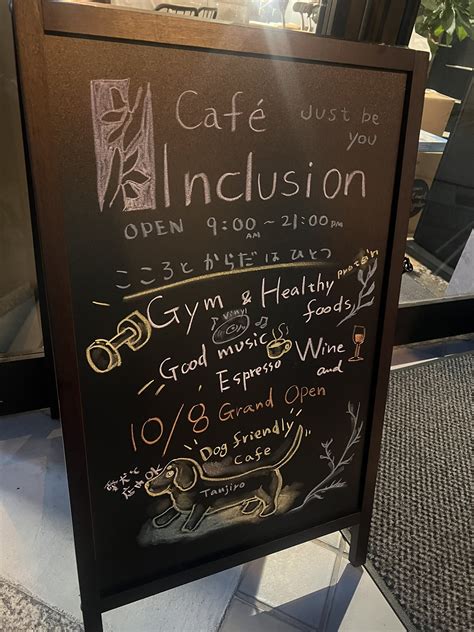 Café
Just be
you
Inclusion
OPEN 9:00 AM ~ 21:00 PM
こころとからだはひとつ
Gym & Healthy
foods
protein
Good music
vinyl
Espresso
Wine
and
10/8 Grand Open
Dog friendly
Cafe
Tanjiro